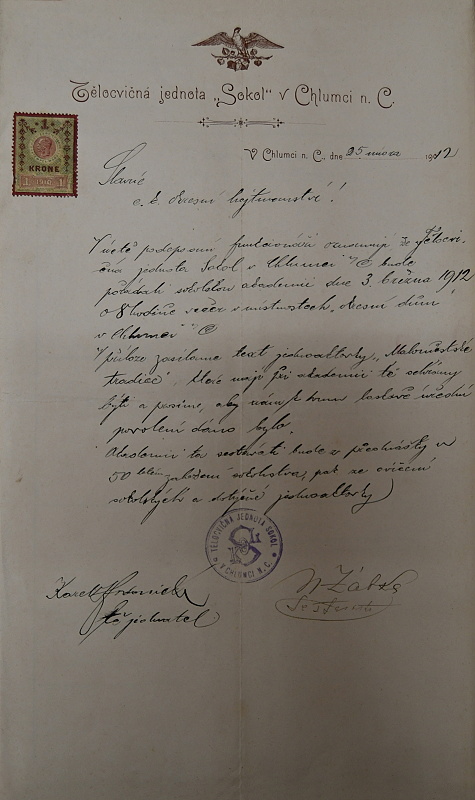 Tělocvičná jednota „Sokol" v Chlumci n. C.
V Chlumci n. C., dne 25 února 1912
1
KRONE
1 1910 1
Slavné
c. k. okresní hejtmanství!
V úctě podepsaní funkcionáři oznamují že Tělocvi-
čná jednota Sokol v Chlumci n/C bude
pořádati sokolskou akademii dne 3. března 1912
o 8 hodině večer v místnostech „okresní dům"
v Chlumci n/C
V příloze zasíláme text jednoaktovky „Maloměstské
tradice", které mají při akademii té sehrány
býti a prosíme, aby nám k tomu laskavě úřední
povolení dáno bylo.
Akademie ta sestávati bude z přednášky o
50 letém založení sokolstva, pak ze cvičení
sokolských a dotyčné jednoaktovky
TĚLOCVIČNÁ JEDNOTA SOKOL
V CHLUMCI N. C.
Karel
jednatel